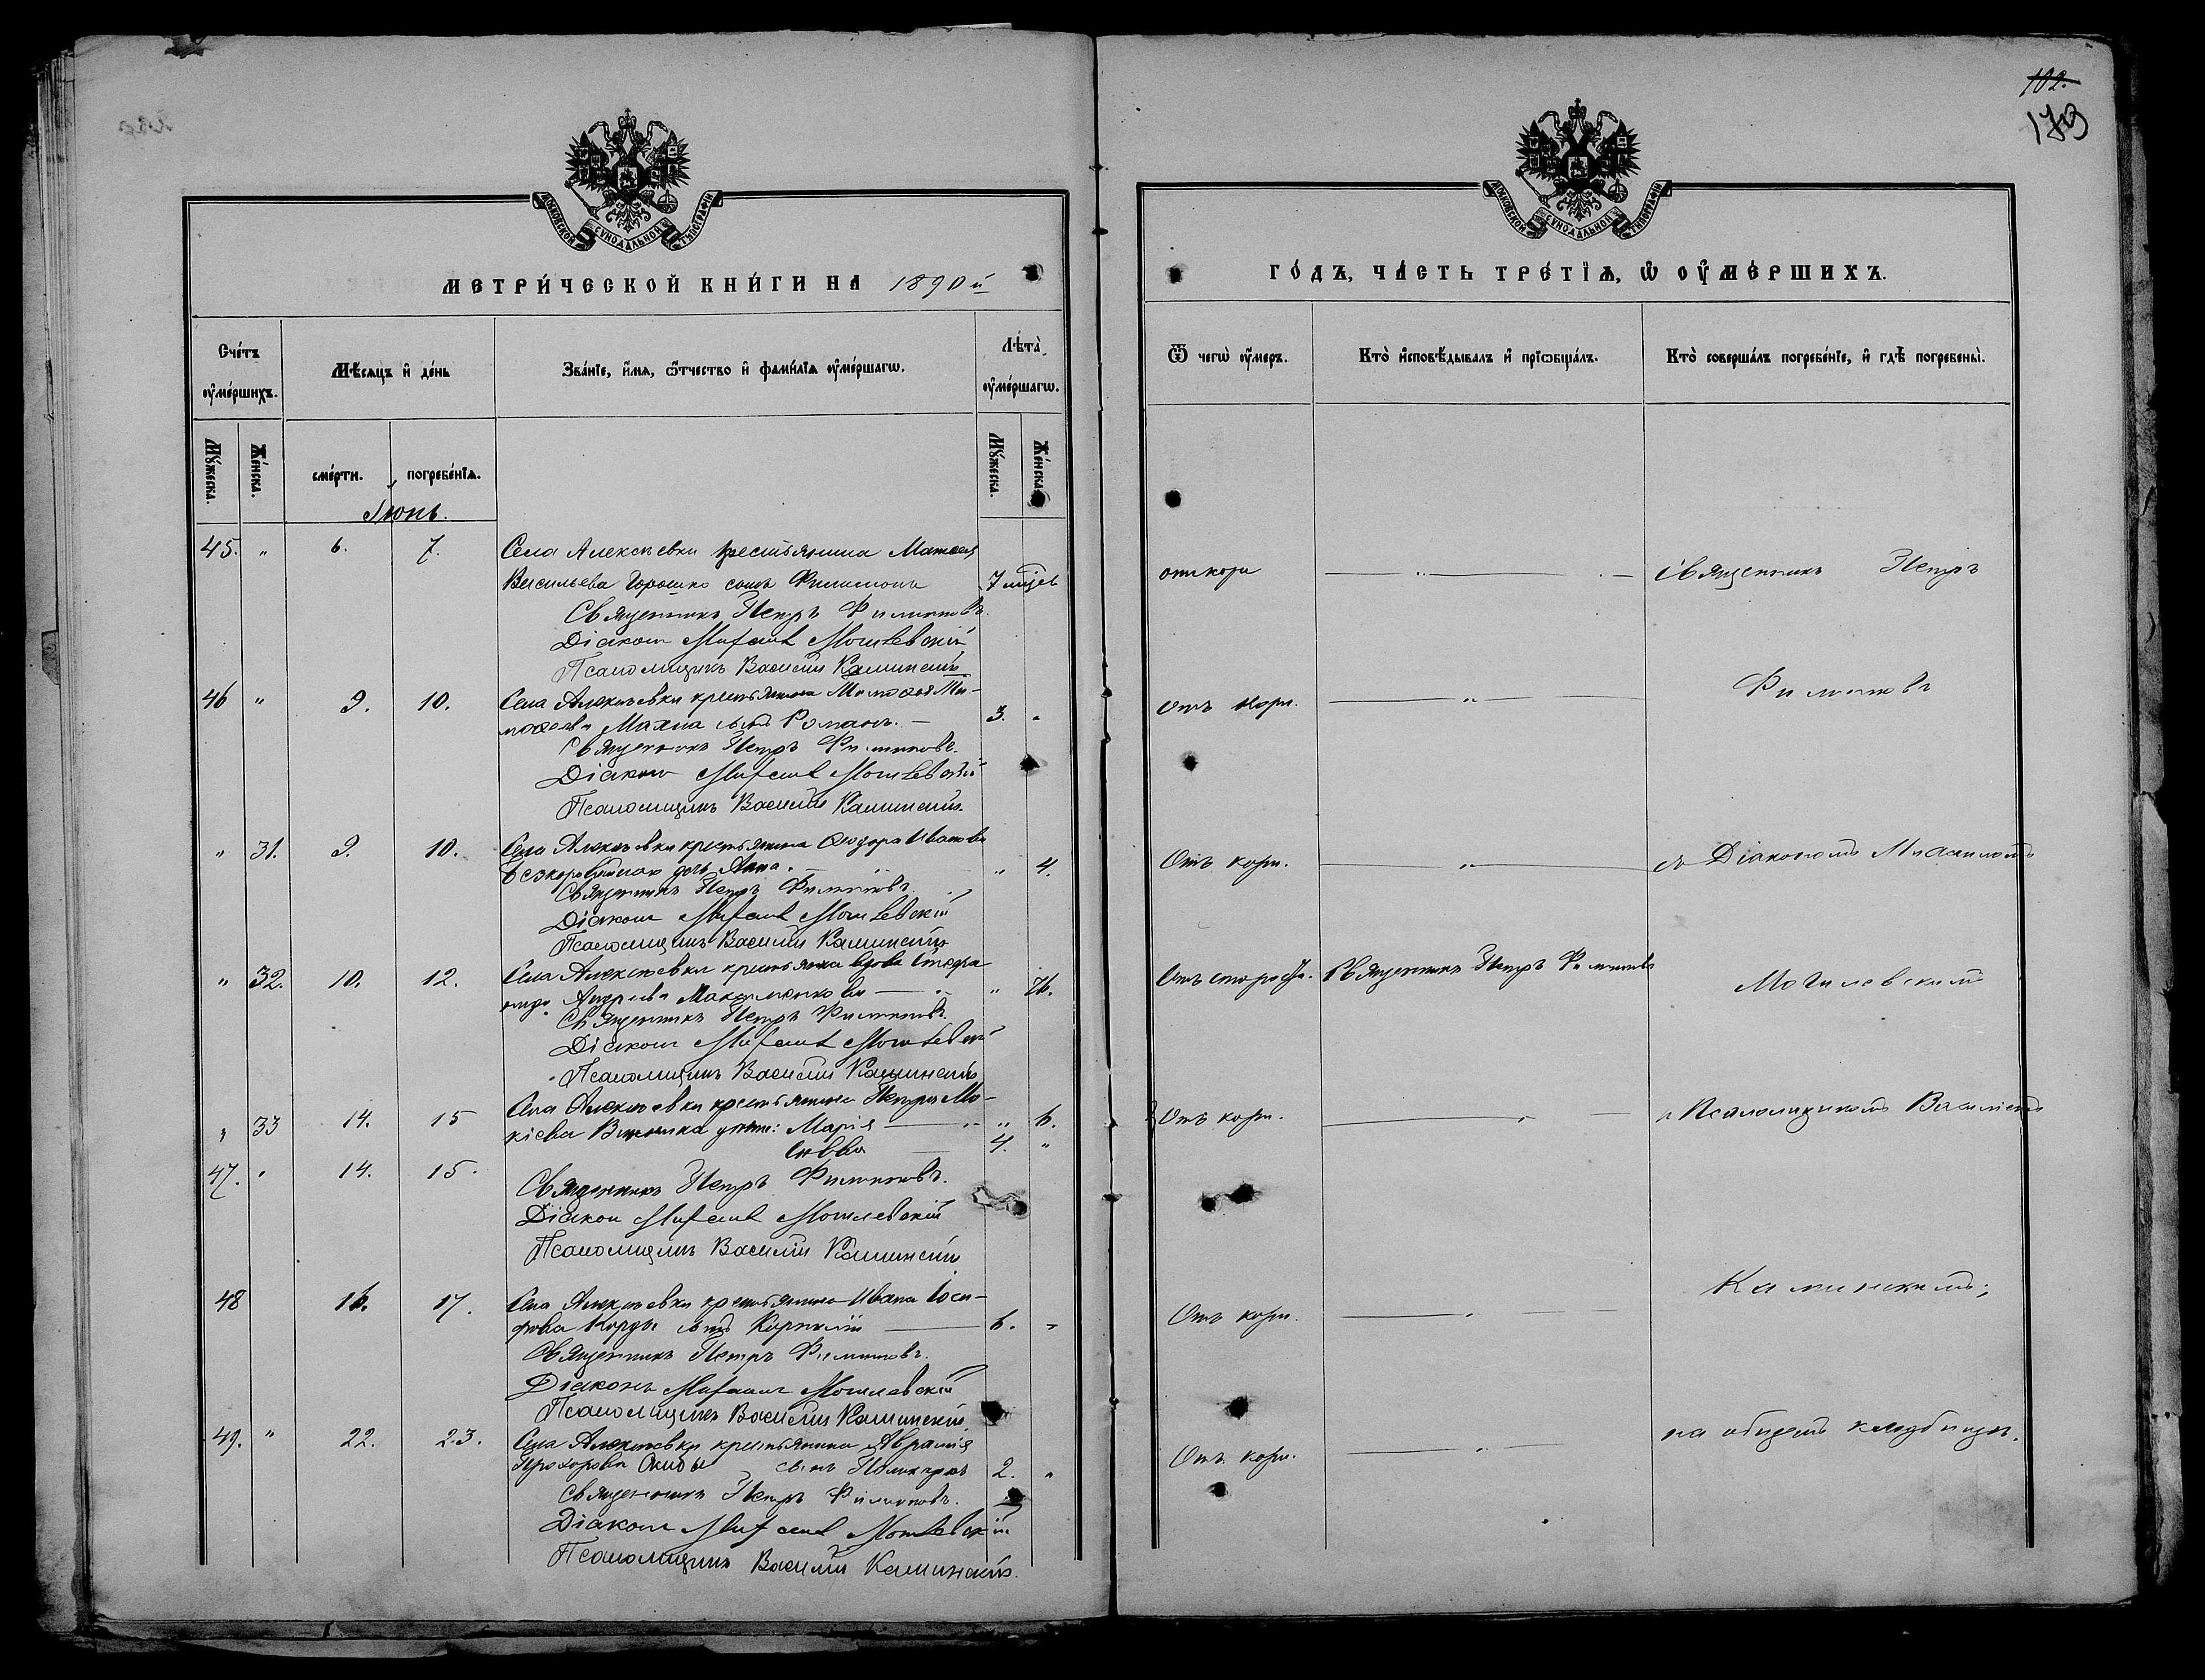 102.
173
МОСКОВСКОЙ СУНОДАЛЬНОЙ ТИПОГРАФІИ
МЕТРИ́ЧЕСКОЙ КНИ́ГИ НА 1890 й
Сче́тъ оу҆ме́ршихъ.
Мѣ́сяцъ и҆ де́нь
Зва́нїе, и҆́мя, ѻ҆́тчество и҆ фами́лїя оу҆ме́ршагѡ.
Лѣ́та оу҆ме́ршагѡ.
Мꙋ́жеска.
Же́нска.
сме́рти.
погребе́нїѧ.
Мꙋ́жеска.
Же́нска.
Іюнь.
45. " 6. 7. Села Алексѣевки крестьянина Матѳея
Васильева Горошко сынъ Филимонъ 7 мцев
Священникъ Петръ Филиповъ.
Діаконъ Михаилъ Могилевскій
Псаломщикъ Василій Каминскій
46 " 9. 10. Села Алексѣевки крестьянина Тимоѳея Ти-
моѳеева Махна сынъ Романъ. 3. "
Священникъ Петръ Филиповъ.
Діаконъ Михаилъ Могилевскій
Псаломщикъ Василій Каминскій.
" 31. 9. 10. Села Алексѣевки крестьянина Ѳеодора Иванова
дочь Анна. " 4.
Священникъ Петръ Филиповъ.
Діаконъ Михаилъ Могилевскій
Псаломщикъ Василій Каминскій
" 32. 10. 12. Села Алексѣевки крестьянка вдова Стефа
нида Андреева " 76.
Священникъ Петръ Филиповъ.
Діаконъ Михаилъ Могилевскій
Псаломщикъ Василій Каминскій
" 33 14. 15 Села Алексѣевки крестьянина Петра Мо-
кіева дѣти: Марія " 6.
Савва 4. "
47. " 14. 15.
Священникъ Петръ Филиповъ.
Діаконъ Михаилъ Могилевскій
Псаломщикъ Василій Каминскій
48 16. 17. Села Алексѣевки крестьянина Ивана Іоси-
фова Корды сынъ Корнилій 6. "
Священникъ Петръ Филиповъ.
Діаконъ Михаилъ Могилевскій
Псаломщикъ Василій Каминскій.
49. " 22. 23. Села Алексѣевки крестьянина Аврамія
Прохорова сынъ Поликарпъ 2. "
Священникъ Петръ Филиповъ.
Діаконъ Михаилъ Могилевскій
Псаломщикъ Василій Каминскій.
МОСКОВСКОЙ СУНОДАЛЬНОЙ ТИПОГРАФІИ
ГО́ДЪ, ЧА́СТЬ ТРЕ́ТЇѦ, Ѡ҆ ОУ҆МЕ́РШИХЪ.
Ѿ чегѡ̀ оу҆́меръ.
Кто̀ и҆сповѣ́дывалъ и҆ прїѡбща́лъ.
Кто̀ соверша́лъ погребе́нїе, и҆ гдѣ̀ погребены̀.
отъ кори " Священникъ Петръ
Отъ кори. " Филиповъ
Отъ кори. " съ Діакономъ Михаиломъ
Отъ старости. Священникъ Петръ Филиповъ Могилевскимъ
Отъ кори. " и Псаломщикомъ Василіемъ
Отъ кори. " Каминскимъ;
Отъ кори. " на общемъ кладбищѣ.